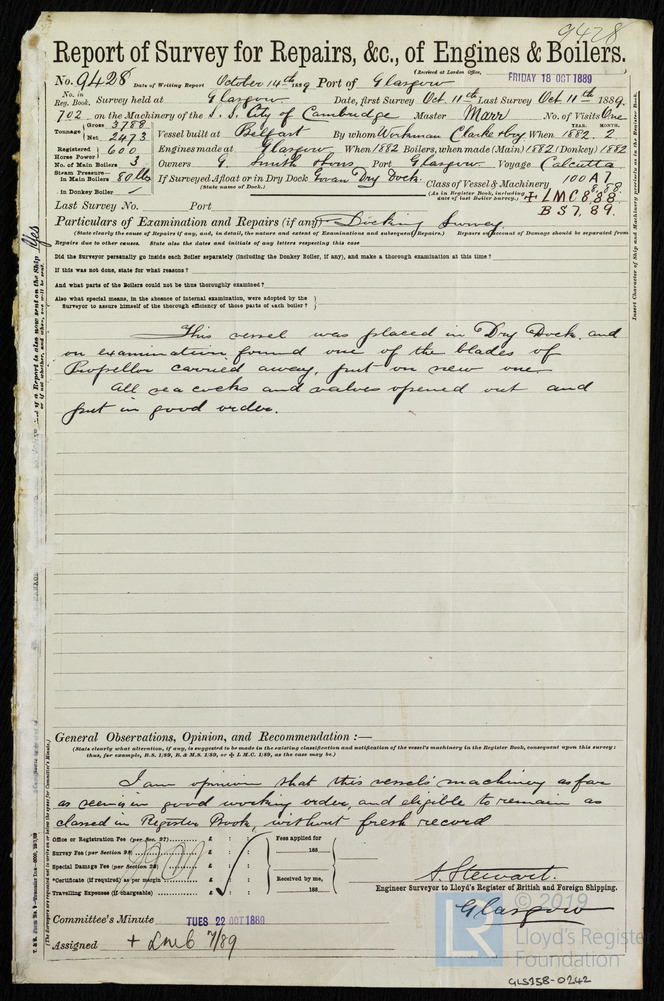 9428
Report of Survey for Repairs, &c., of Engines & Boilers.
(Received at London Office, FRIDAY 18 OCT 1889
No. 9428 Date of Writing Report October 14th 1889 Port of Glasgow
No. in Reg. Book. Survey held at Glasgow Date, first Survey Oct. 11th Last Survey Oct 11th 1889.
702 on the Machinery of the S. S. City of Cambridge Master Marr No. of Visits One
Tonnage Gross 3788 Net 2473 Vessel built at Belfast By whom Workman Clarke & Coy When 1882. 2
YEAR. MONTH.
Registered Horse Power 600 Engines made at Glasgow When 1882 Boilers, when made (Main) 1882 (Donkey) 1882
No. of Main Boilers 3 Owners G. Smith & Sons Port Glasgow Voyage Calcutta
Steam Pressure— in Main Boilers 80 lbs If Surveyed Afloat or in Dry Dock Govan Dry Dock.
(State name of Dock.)
in Donkey Boiler ✓
Class of Vessel & Machinery 100 A 1 8.88
(As in Register Book, including date of last Boiler Survey.) + LMC 8.88.
B S 7. 89.
Last Survey No. Port
Particulars of Examination and Repairs (if any) Docking Survey.
(State clearly the cause of Repairs if any, and, in detail, the nature and extent of Examinations and subsequent Repairs.) Repairs on account of Damage should be separated from
Repairs due to other causes. State also the dates and initials of any letters respecting this case
Did the Surveyor personally go inside each Boiler separately (including the Donkey Boiler, if any), and make a thorough examination at this time?
If this was not done, state for what reasons?
And what parts of the Boilers could not be thoroughly examined?
Also what special means, in the absence of internal examination, were adopted by the
Surveyor to assure himself of the thorough efficiency of those parts of each boiler?
This vessel was placed in Dry Dock. and
on examination, found one of the blades of
Propellor carried away, put on new one.
All sea cocks and valves opened out and
put in good order.
General Observations, Opinion, and Recommendation:—
(State clearly what alteration, if any, is suggested to be made in the existing classification and notification of the vessel's machinery in the Register Book, consequent upon this survey:
thus, for example, B.S. 1/89, B. & M.S. 1/89, or + L.M.C. 1/89, as the case may be.)
I am opinion that this vessels' machinery as far
as seen is in good working order, and eligible to remain as
classed in Register Book, without fresh record
Office or Registration Fee (per Sec. 27) £ : : Fees applied for
Survey Fee (per Section 28) £ : : 188
Special Damage Fee (per Section 28) £ : :
*Certificate (if required) as per margin £ : : Received by me,
Travelling Expenses (if chargeable) £ : : 188
A. Stewart.
Engineer Surveyor to Lloyd's Register of British and Foreign Shipping.
Glasgow
Committee's Minute TUES 22 OCT 1889
Assigned + LMC 7/89
Yes
Insert Character of Ship and Machinery precisely as in the Register Book.
© 2019
LR
Lloyd's Register
Foundation
GLS358-0242